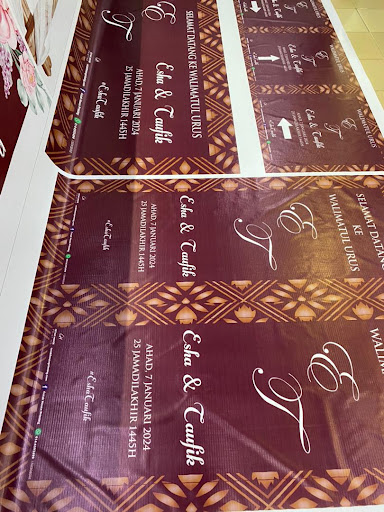 SELAMAT DATANG KE WALIMATUL URUS
E
T
Esha & Taufik
AHAD, 7 JANUARI 2024
25 JAMADILAKHIR 1445H
#EshaTaufik
E
T
Esha & Taufik
WALIMATUL URUS
E
T
Esha & Taufik
WALIMATUL URUS
E
T
Esha & Taufik
SELAMAT DATANG
KE
WALIMATUL URUS
E
T
Esha & Taufik
AHAD, 7 JANUARI 2024
25 JAMADILAKHIR 1445H
#EshaTaufik
E
T
Esha & Taufik
AHAD, 7 JANUARI 2024
25 JAMADILAKHIR 1445H
#EshaTaufik